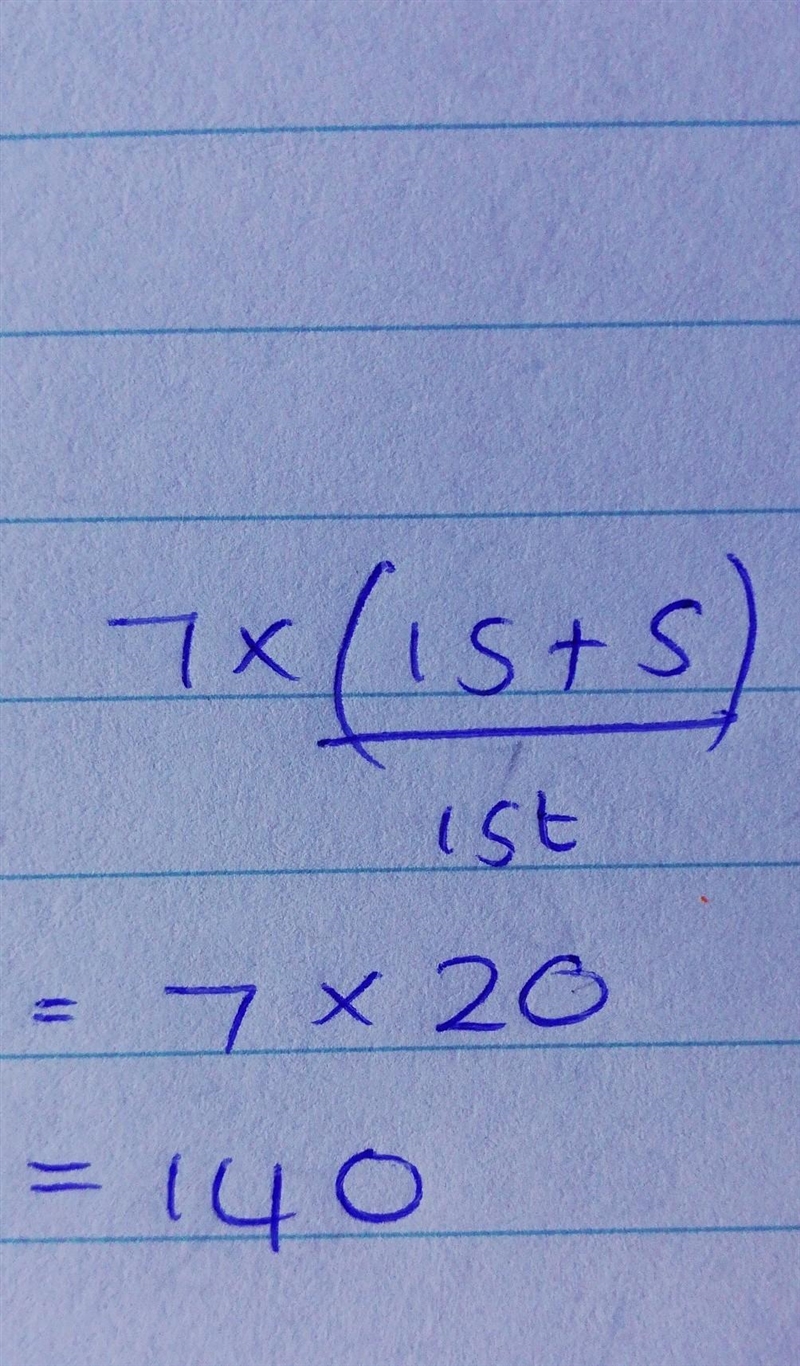 7 × (15 + 5)
1st
= 7 × 20
= 140